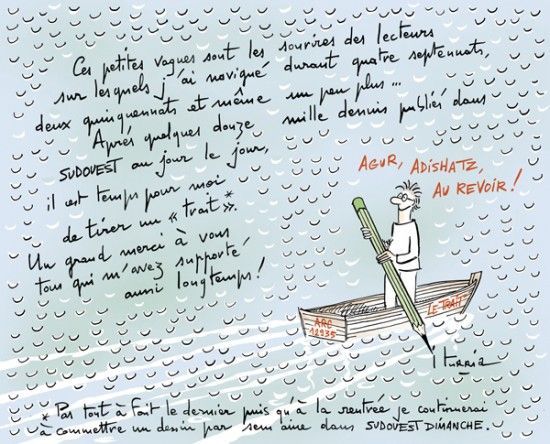 Ces petites vagues sont les sourires des lecteurs
sur lesquels j'ai navigué durant quatre septennats,
deux quinquennats et même un peu plus...
Après quelques douze mille dessins publiés dans
SUDOUEST au jour le jour,
il est temps pour moi
de tirer un « trait ».*
Un grand merci à vous
tous qui m'avez supporté
aussi longtemps!
AGUR, ADISHATZ,
AU REVOIR!
ARC
12935
LE TRAIT
Iturria
* Pas tout à fait le dernier puis qu'à la rentrée je continuerai
à commettre un dessin par semaine dans SUDOUEST DIMANCHE.